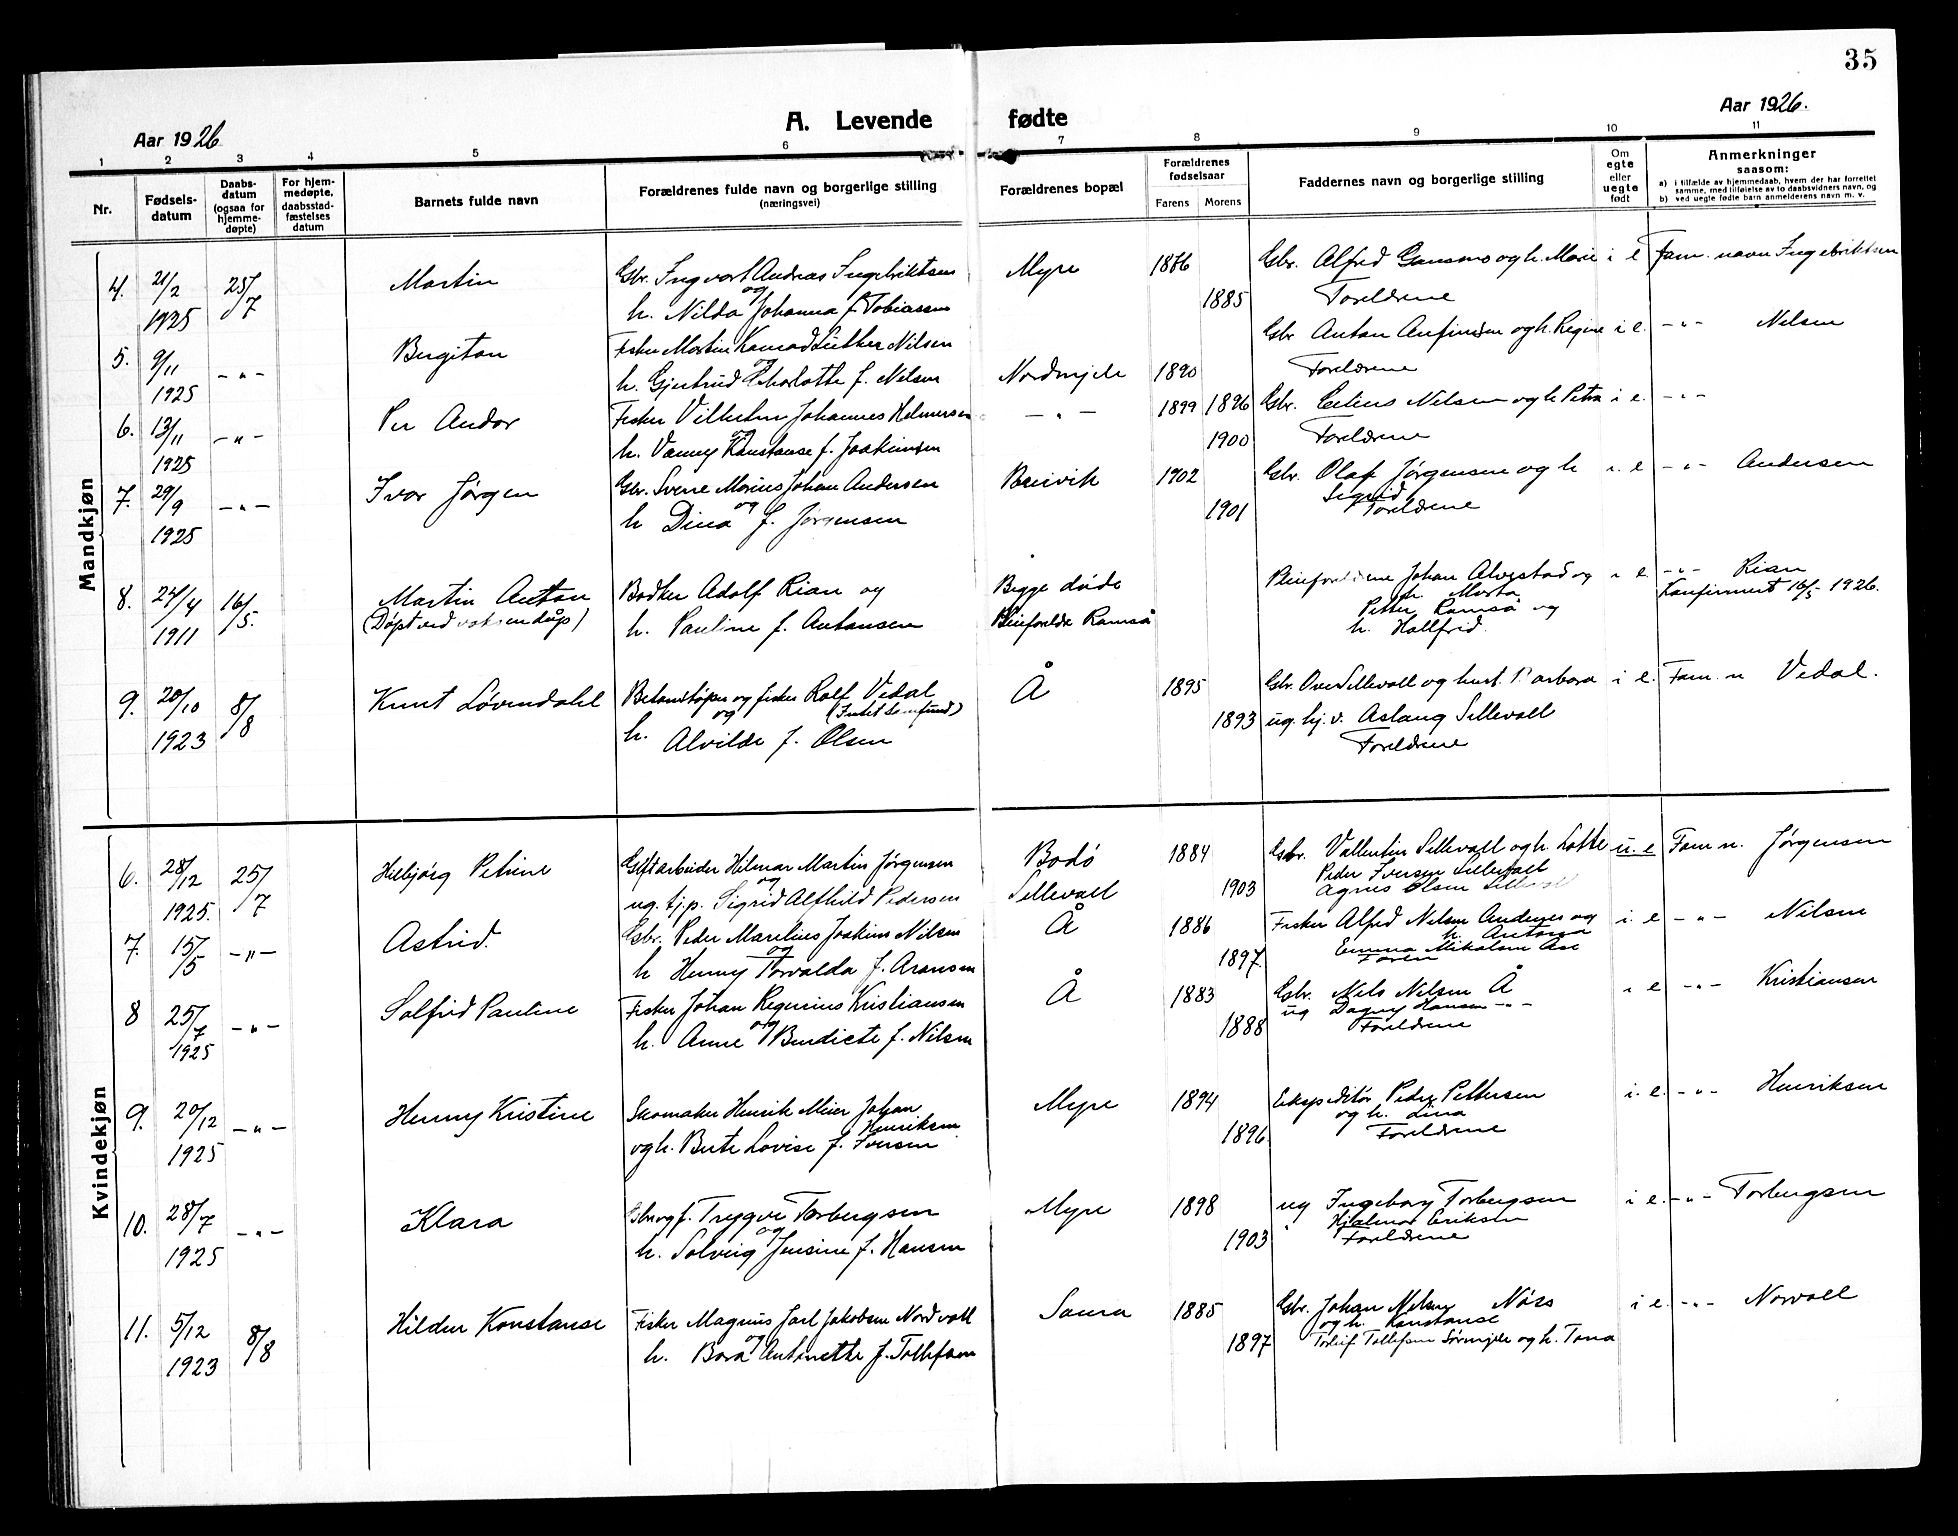 35
Aar 1926.
A. Levende fødte
Aar 1926.
1 2 3 4 5 6 7 8 9 10 11
Nr.
Fødsels-
datum
Daabs-
datum
(ogsaa for
hjemme-
døpte)
For hjem-
medøpte,
daabsstad-
fæstelses
datum
Barnets fulde navn
Forældrenes fulde navn og borgerlige stilling
(næringsvei)
Forældrenes bopæl
Forældrenes
fødselsaar
Farens Morens
Faddernes navn og borgerlige stilling
Om
egte
eller
uegte
født
Anmerkninger
saasom:
a) i tilfælde av hjemmedaab, hvem der har forrettet
samme, med tilføielse av to daabsvidners navn, og
b) ved uegte fødte barn anmelderens navn m. v.
Mandkjøn
4. 21/2 25/7 Martin Gbr. Ingvart Andreas Ingebriktsen Myre 1886 Gbr. Alfred Gausmo og h. Marie i e Fam. navn Ingebriktsen
1925 og
h. Nilda Johanna f. Tobiassen 1885 Foreldrene
5. 9/11 -"- Birgiton Fisker Martin Konrad Luther Nilsen Gbr Anton Anfinsen og h. Regine i e. -"- Nilsen
1925 og
h. Gjertrud Charlotte f. Nilsen Nordmjele 1890 Foreldrene
6. 13/11 -"- Per Andor Fisker Vilhelm Johannes Helmersen -"- 1899 1896 Gbr. Edius Nilsen og h. Petra i e. -"-
1925 og
h. Vanny Konstanse f. Joakimsen 1900 Foreldrene
7. 29/9 -"- Ivar Jørgen Gbr. Sverre Marius Johan Andersen Breivik 1902 Gbr. Olaf Jørgensen og h i. e -"- Andersen
Sigrid
1925 og
h Dina f. Jørgensen 1901 Foreldrene
8. 24/4 16/5. Martin Anton Bødker Adolf Rian og Begge døde Pleieforeldrene Johan Alvestad og i e. -"- Rian
h. Marta Konfirmert 16/5-1926.
1911 (Døpt ved voksendåp) h. Pauline f. Antonsen Pleieforeldre Ramså Petter Ramså og
h. Hallfrid.
9. 20/10 8/8 Knut Løvendahl Betonstøper og fisker Rolf Vedal Å 1895 Gbr. Ove Sellevoll og hust. Barbara i e. Fam. n Vedal.
(Intet samfund)
1923 og
h. Alvilde f. Olsen 1893 ug. hj. v. Aslaug Sellevoll
Foreldrene
Kvindekjøn
6. 28/12 25/7 Heibjørg Petrine Hilmar Martin Jørgensen Bodø 1884 Gbr. Vallentin Sellevoll og h. Lotte u. e Fam n. Jørgensen
Peder Iversen Sellevoll
1925. og
ug. tj.p. Sigrid Alfhild Pedersen Sellevoll 1903 Agnes Olsen Sellevoll
7. 15/5 -"- Astrid. Gbr. Peder Marelius Joakim Nilsen Å 1886 Fisker Alfred Nilsen Andenes og i. e -"- Nilsen
h. Antona
og Emma Mikalsen Åse
h Henny Torvalda f. Aronsen 1897
8 25/7 -"- Solfrid Pauline Fisker Johan Reginius Kristiansen Å 1883 Gbr. Nils Nilsen Å i e -"- Kristiansen
ug Dagny Hansen -"-
1925 og
h. Anne Bendicte f. Nilsen 1888 Foreldrene
9. 20/12 -"- Henny Kristine Skomaker Henrik Meier Johan Myre 1894 Ekspeditør Peder Pettersen i. e. -"- Henriksen
Henriksen og h. Lina
1925 og h. Berte Lovise f. Iversen 1896 Foreldrene
10. 28/7 -"- Klara Gbr og f. Trygve Torbergsen Myre 1898 ug Ingeborg Torbergsen i e. -"- Torbergsen
Hjalmar Eriksen
1925 og
h. Solveig Jensine f. Hansen 1903 Foreldrene
11. 5/12 8/8 Hildur Konstanse Fisker Magnus Jarl Jakobsen Nordvoll Saura 1885 Gbr. Johan Nilsen Nøss i e. -"- Norvoll
og h. Konstanse
1923 og
h. Bora Antonette f. Tollefsen 1897 Torleif Tollefsen Sørmjele og h. Tona